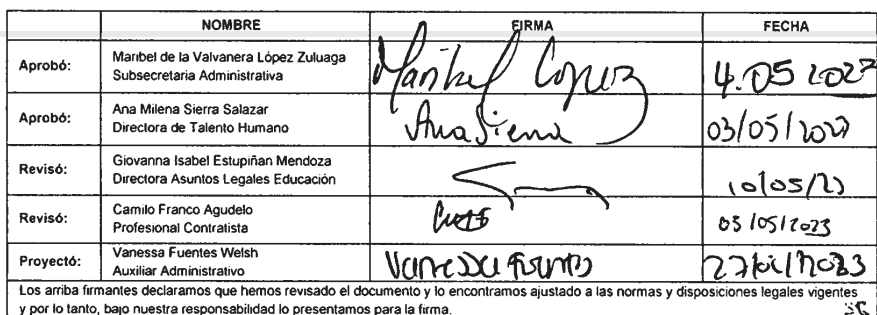 NOMBRE FIRMA FECHA
Aprobó: Maribel de la Valvanera López Zuluaga
Subsecretaria Administrativa
Maribel Lopez 4.05 2023
Aprobó: Ana Milena Sierra Salazar
Directora de Talento Humano
Ana Sierra 03/05/2023
Revisó: Giovanna Isabel Estupiñan Mendoza
Directora Asuntos Legales Educación
10/05/23
Revisó: Camilo Franco Agudelo
Profesional Contratista
03/05/2023
Proyectó: Vanessa Fuentes Welsh
Auxiliar Administrativo
Vanessa Fuentes
Los arriba firmantes declaramos que hemos revisado el documento y lo encontramos ajustado a las normas y disposiciones legales vigentes
y por lo tanto, bajo nuestra responsabilidad lo presentamos para la firma.